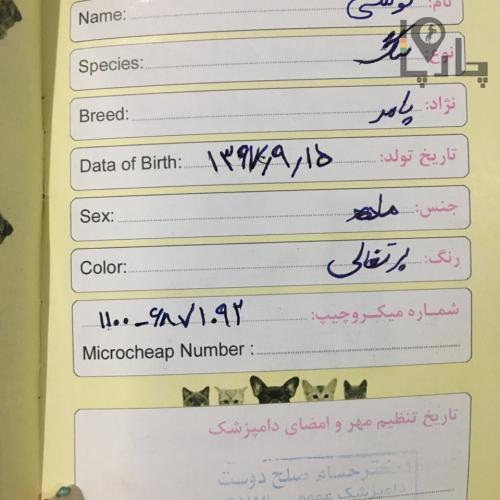 نام:
Name:
چارپا
نوع: سگ
Species:
نژاد: پامر
Breed:
تاریخ تولد: ۱۳۹۷٫۹٫۱۵
Data of Birth:
جنس: ماده
Sex:
رنگ: پرتغالی
Color:
شماره میکروچیپ:
۱۱۰۰-۶۸۷۱۰۹۲
Microcheap Number :
تاریخ تنظیم مهر و امضای دامپزشک
دکتر حسام صلح دوست
دامپزشک